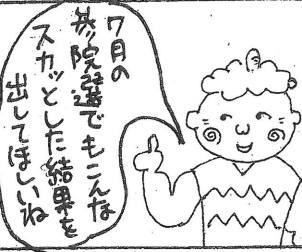 7月の
参院選でもこんな
スカッとした結果を
出してほしいね